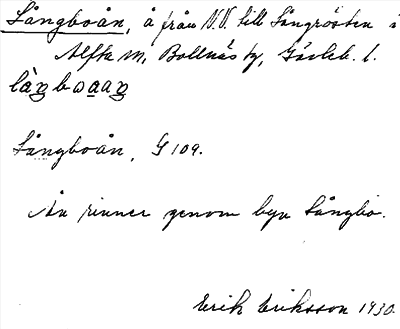 Långboån, å från N.V. till Långrösten i
Alfta sn, Bollnäs tg, Gävleb. l.
Långboån, G 109.
Ån rinner genom byn Långbo.
Erik Eriksson 1930.